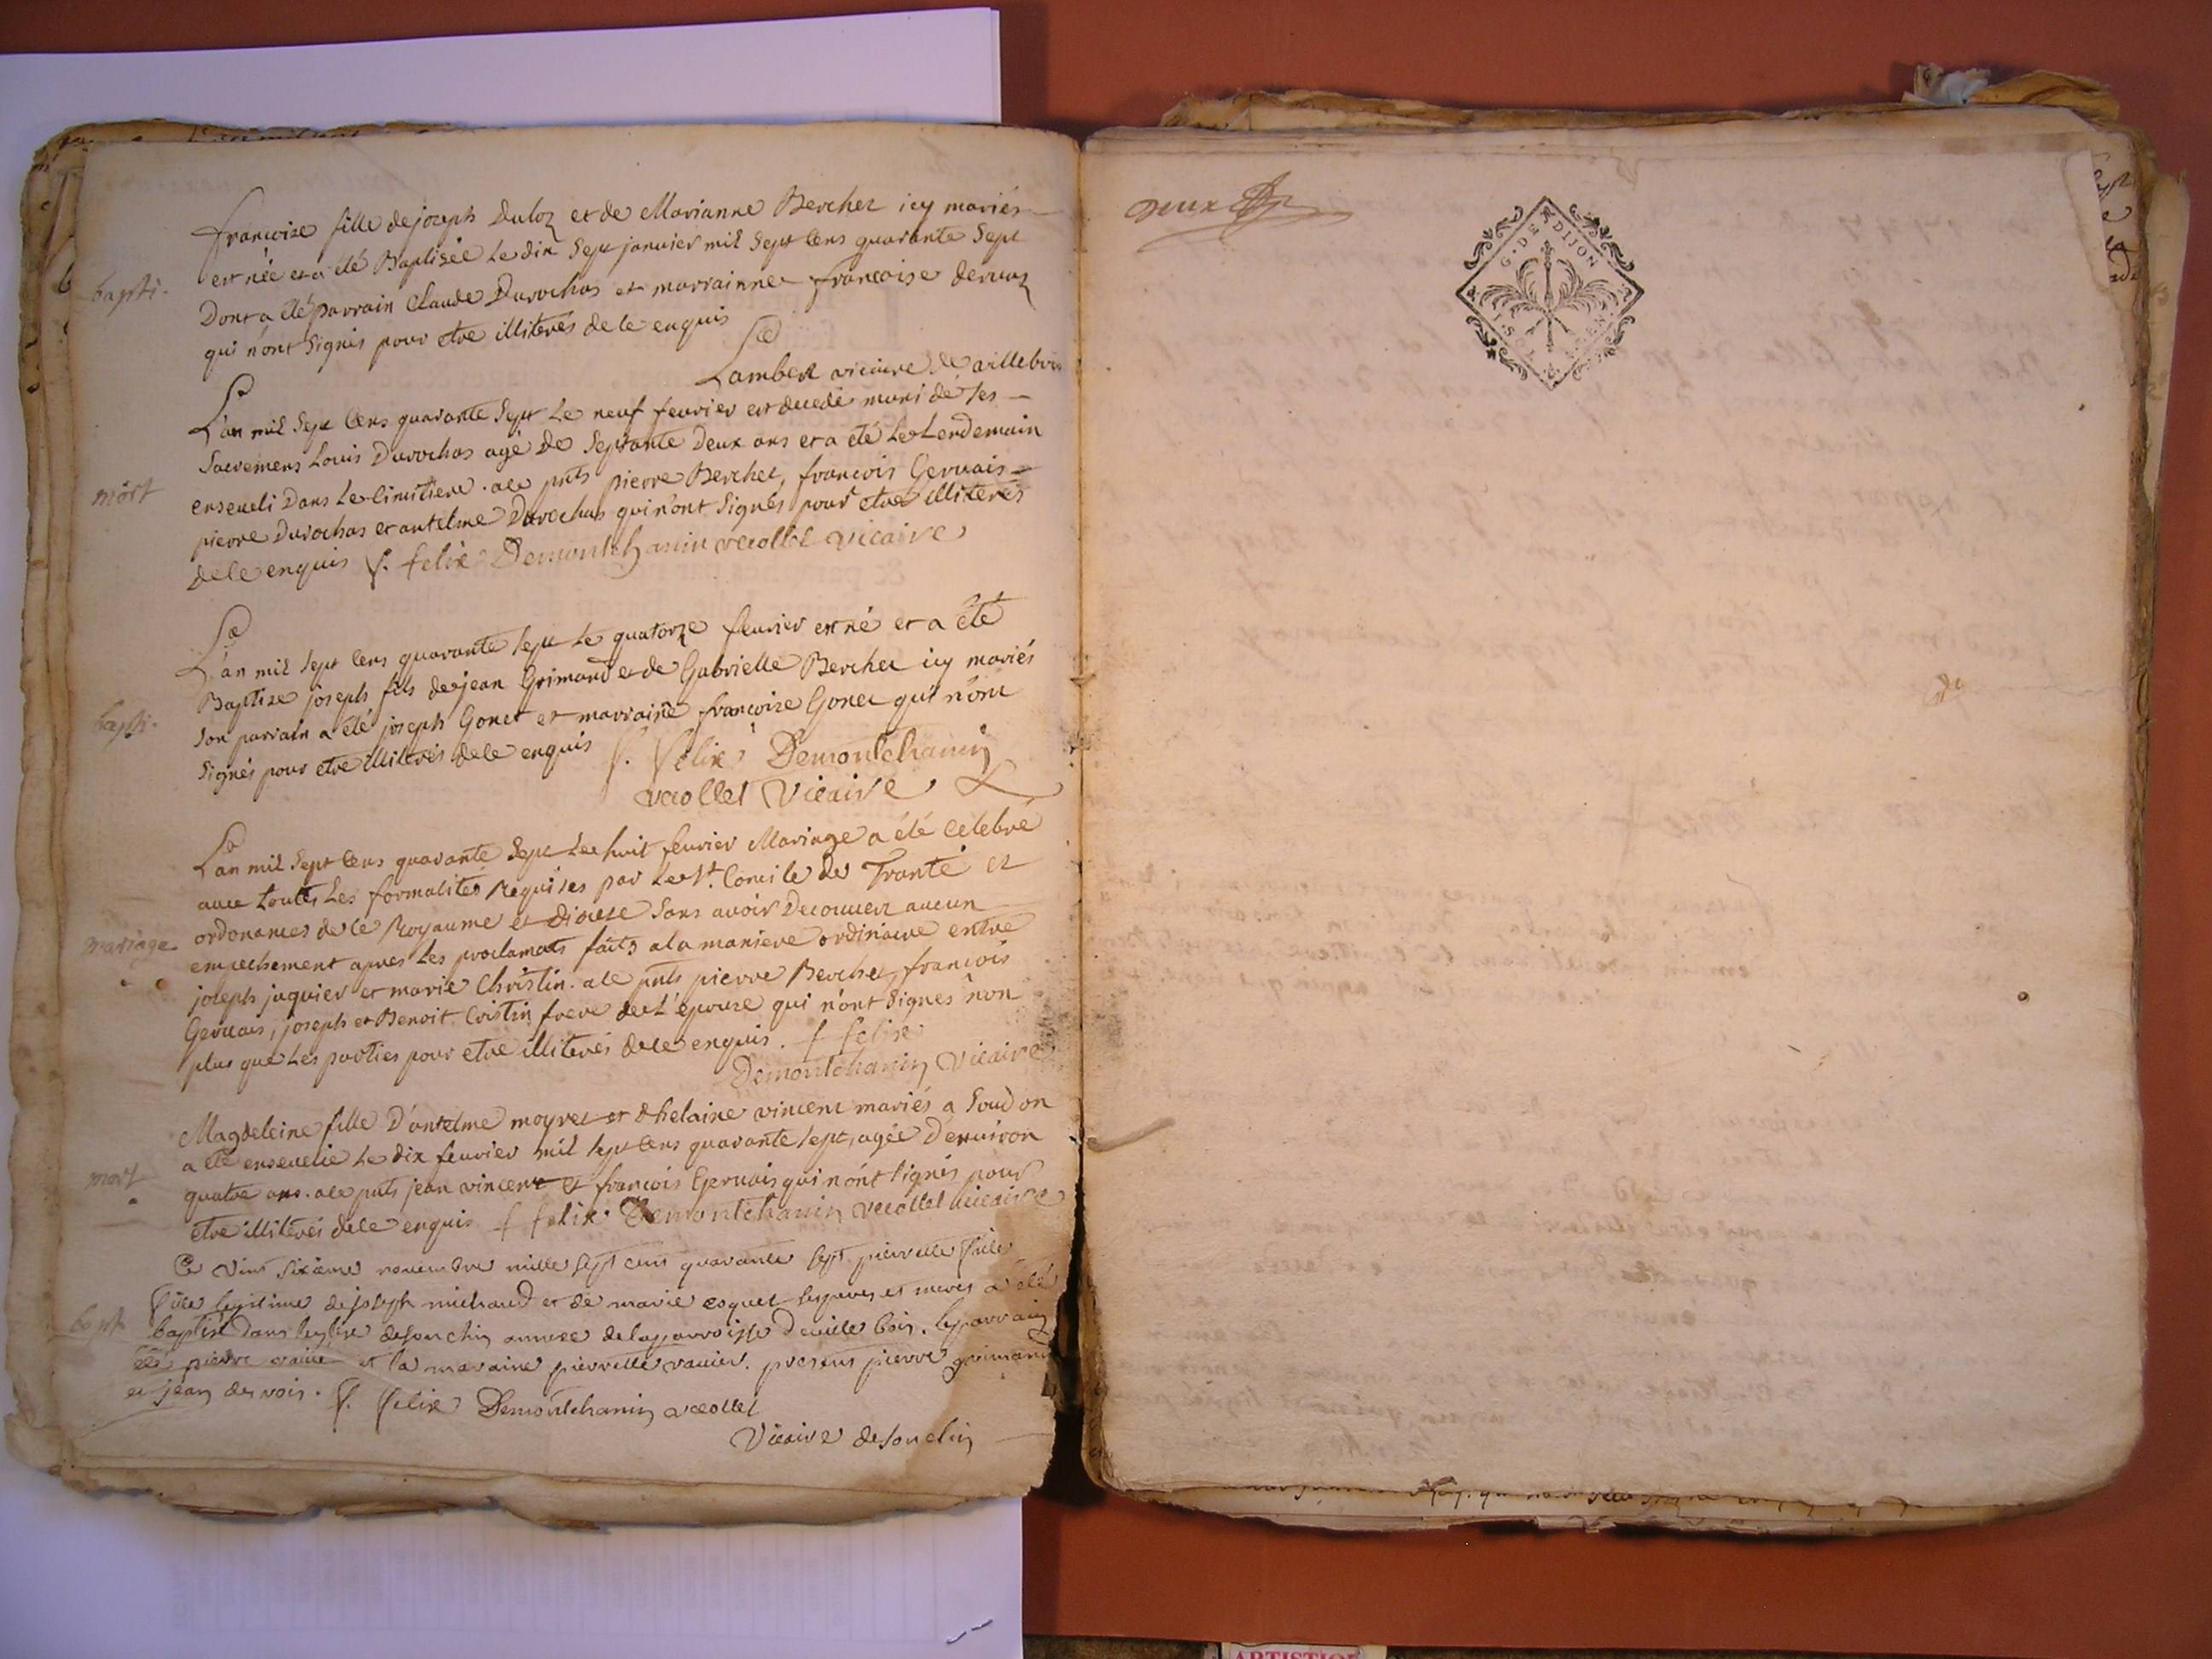 françoise fille de joseph Duloz et de Marianne Berchet icy mariés
bapti.
est née et a été Baptisée le dix Sept janvier mil Sept Cens quarante Sept
Dont a été parrain Claude Durochas et marrainne françoise
qui n'ont Signés pour etre illiterés de ce enquis
Lambert vicaire de villebois
L'an mil Sept Cens quarante Sept Le neuf fevrier est decedé muni de ses
Sacremens Louis Durochas agé de Septante Deux ans et a été Le Lendemain
mort
enseveli Dans Le Cimitiere. ace pnts pierre Berchet, francois Gervais
pierre Durochas et antelme Durochas qui n'ont Signés pour etre illiterés
de ce enquis f. felix Demontchanin recollet vicaire
L'an mil Sept Cens quarante Sept Le quatorze fevrier est né et a été
Baptise joseph fils de jean Grimand et de Gabrielle Berchet icy mariés
bapti.
son parrain a été joseph Gonet et marraine françoise Gonet qui n'ont
Signés pour etre illiterés de ce enquis f. felix Demontchanin
recollet Vicaire
L'an mil Sept Cens quarante Sept Le huit fevrier Mariage a été Celebré
avec toutes Les formalités Requises par Le St. Concile de Trante et
ordonances de ce Royaume et diocese Sans avoir Decouvert aucun
mariage
empechement apres Les proclamats faits a la maniere ordinaire entre
joseph juquier et marie Christin. ace pnts pierre Berchet, francois
Gervais, joseph et Benoit Cristin frere de L'epouse qui n'ont Signes non
plus que Les parties pour etre illiterés de ce enquis. f felix
Demontchanin Vicaire
Magdeleine fille D'antelme moyret et d'helaine vincent mariés a Soudon
a été ensevelie Le dix fevrier mil Sept Cens quarante Sept, agée D'environ
mort
quatre ans. ace pnts jean vincent et francois Gervais qui n'ont Signés pour
etre illiterés de ce enquis f felix Demontchanin recollet vicaire
Ce vint sixieme novembre mille sept cens quarante sept pierrette fille
fille legitime de joseph michaud et de marie coquet ses peres et meres a été
bapt
baptisé dans leglise de souclin annexe de la parroisse de ville bois. le parrain
été pierre et la maraine pierrette vanier. presens pierre grimand
et jean des vois. f. felix Demontchanin recollet
Vicaire de souclin
deux
G. DE DIJON